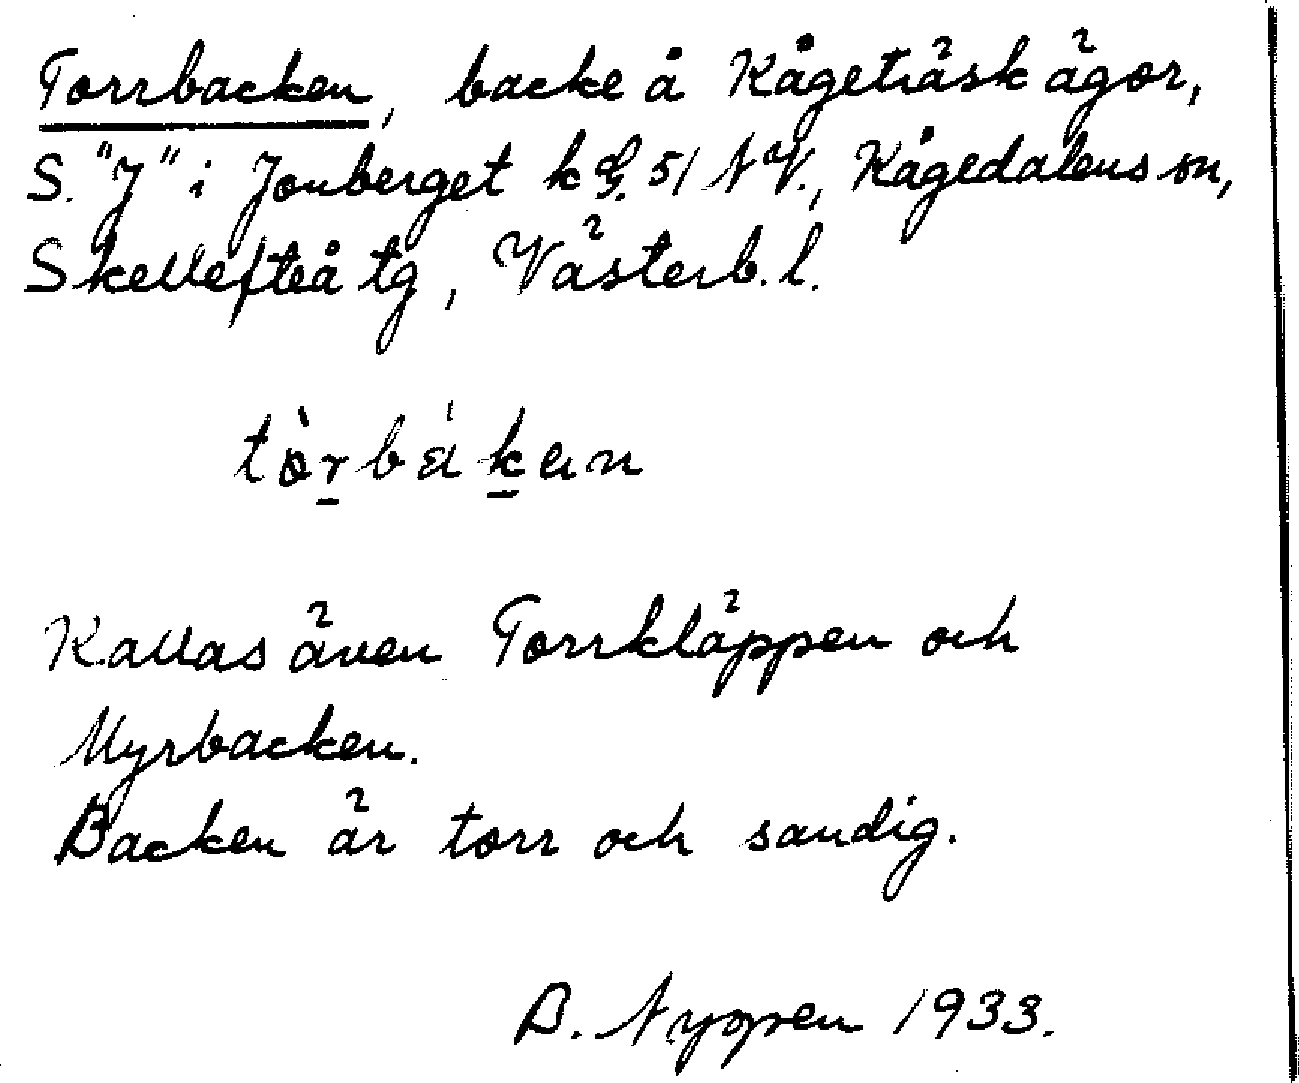 Torrbacken, backe å Kågeträsk ägor,
S. "J" i Jonberget k G. 51 NV., Kågedalens sn,
Skellefteå tg, Västerb. l.
Kallas även Torrkläppen och
Myrbacken.
Backen är torr och sandig.
B. Nygren 1933.